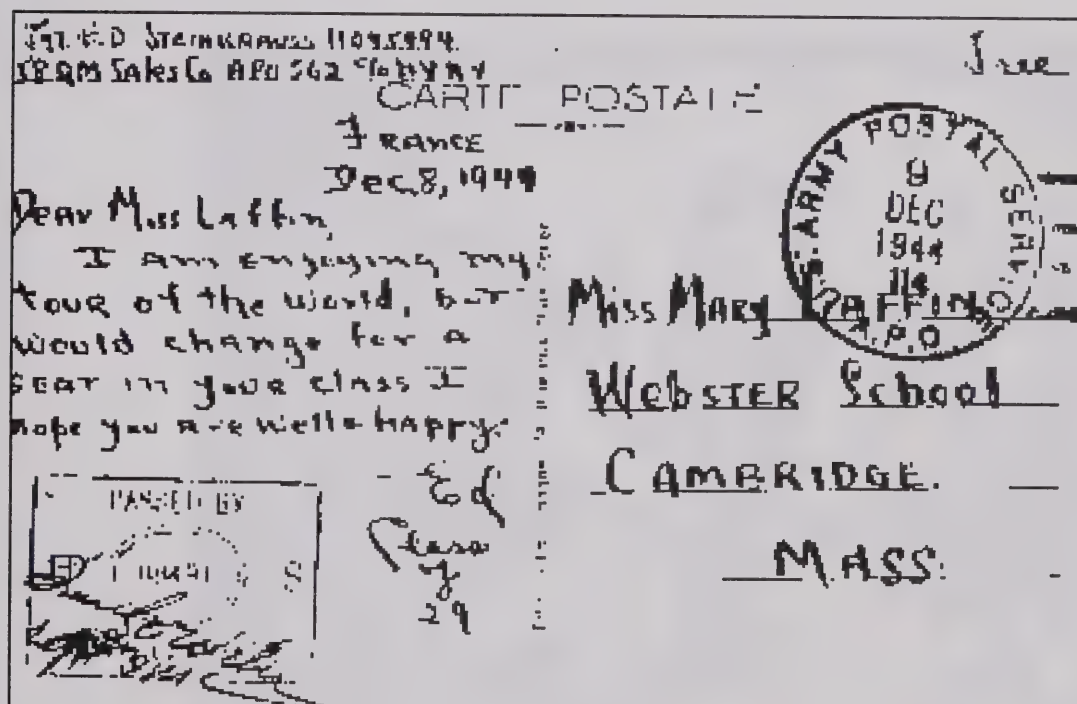 Sgt. E.D STEINKRAUSS 11095894.
QM Sales Co APO 562 c/o NY NY
Free
CARTE POSTALE
FRANCE
Dec, 8, 1944
Dear Miss Laffin,
I am enjoying my
tour of the world, but
would change for a
seat in your class I
hope you are well & happy.
Ed
Class
of
29
PASSED BY
U.S. ARMY POSTAL SERV.
9
DEC
1944
114
A.P.O
Miss Mary LAFFIN
Webster School
CAMBRIDGE.
MASS.